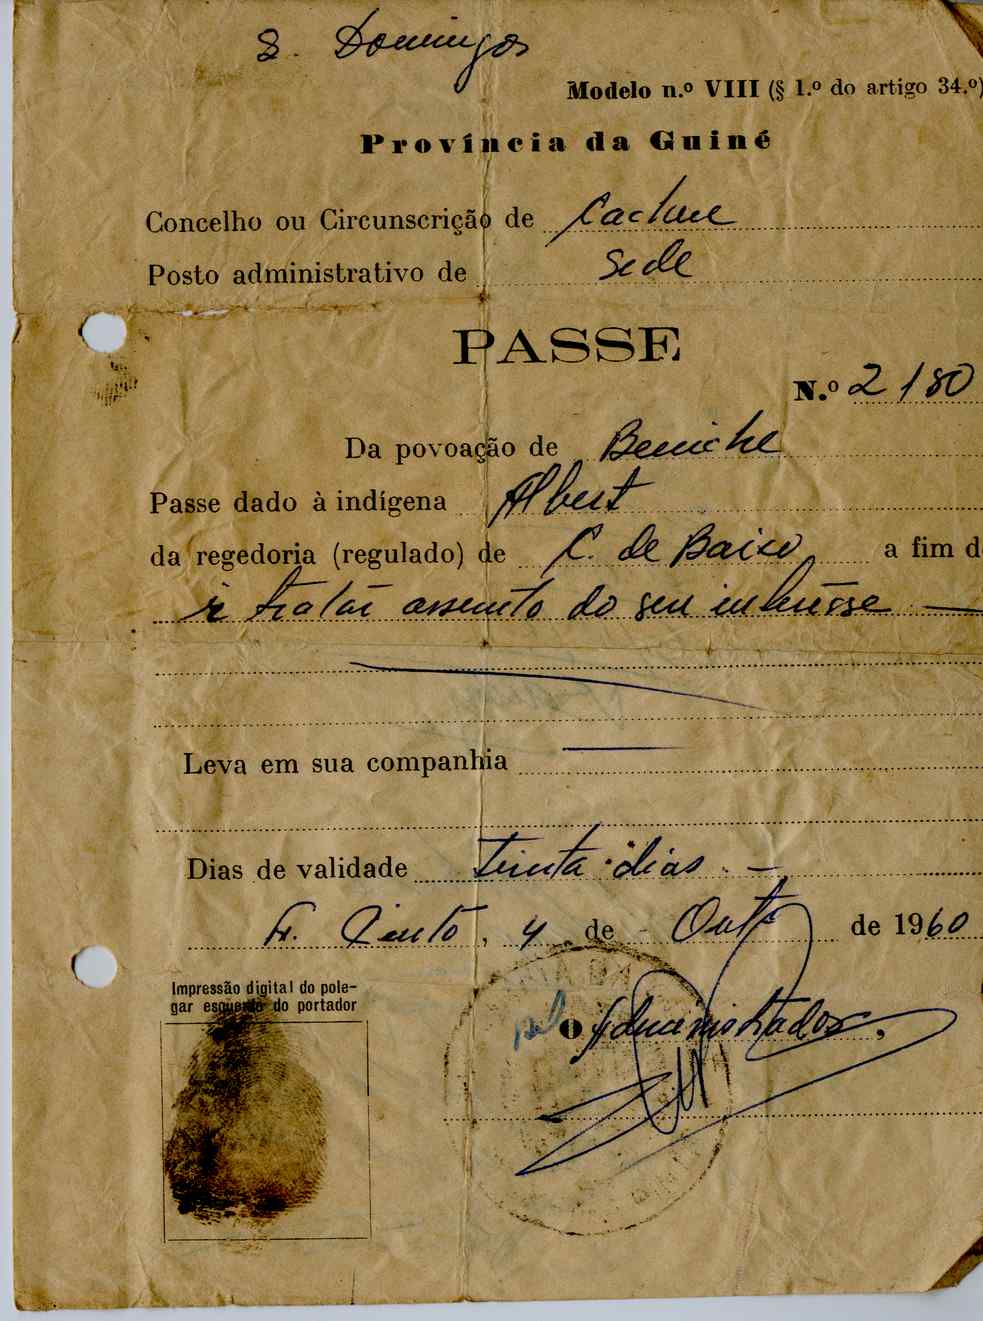 S. Domingos
Modelo n.º VIII (§ 1.º do artigo 34.º)
Província da Guiné
Concelho ou Circunscrição de Cacheu
Posto administrativo de Sede
PASSE
N.º 2180
Da povoação de
Passe dado à indígena Albert
da regedoria (regulado) de C. de Baixo a fim d
ir tratar assunto do seu interêsse
Leva em sua companhia
Dias de validade trinta dias
T. Pinto, 4 de Outº de 1960
Impressão digital do pole-
gar esquerdo do portador
pel O Administrador,